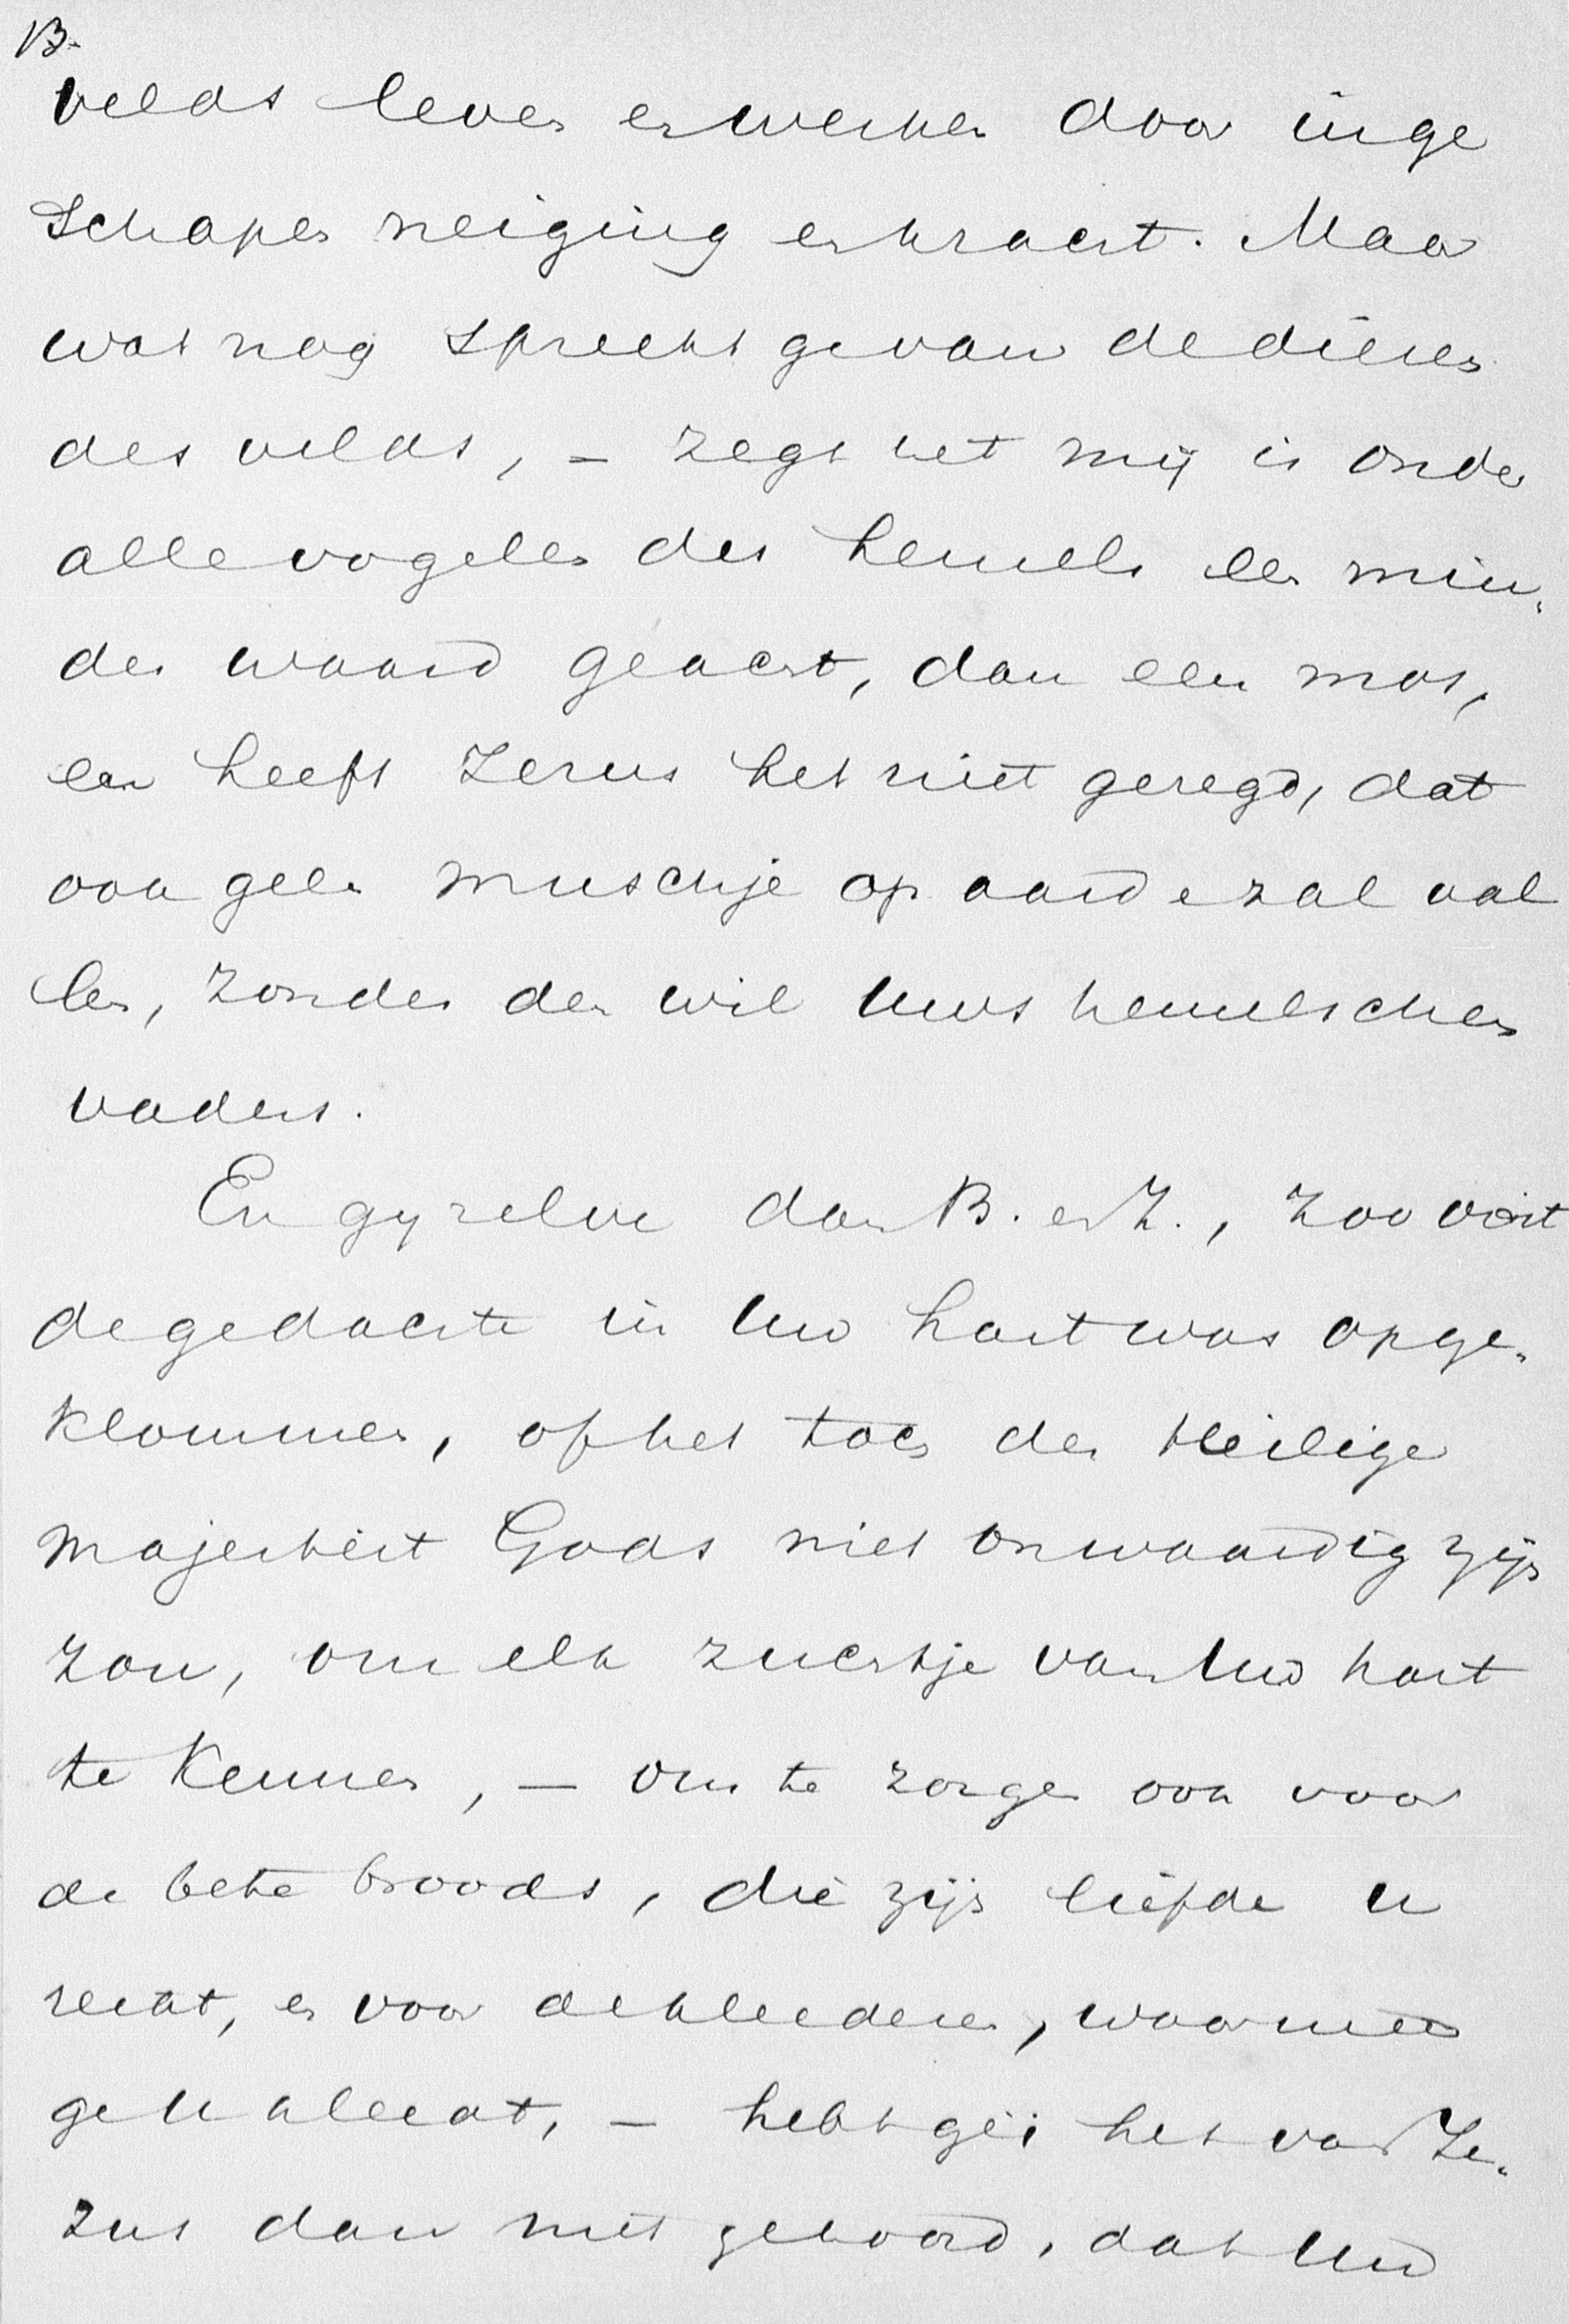 13.
velds leven en werken door inge
schapen neiging en kracht. Maar
wat nog spreekt ge van de dieren
des velds, – zegt het mij is onder
alle vogelen des hemels een min-
der waard geacht, dan een mos,
en heeft Jezus het niet gezegd, dat
ook geen muschje op aarde zal val
len, zonder den wil Uws hemelschen
vaders.
En gy zelve dan B. en Z., zoo ooit
de gedachte in Uw hart was opge-
klommen, of het toch der Heilige
majesteit Gods niet onwaardig zijn
zou, om elk zuchtje van Uw hart
te kennen, – om te zorgen ook voor
de bete broods, die zijn liefde U
reikt, en voor de kleederen, waarmeê
ge U kleedt, – hebt gij het van Je-
zus dan niet gehoord, dat Uw